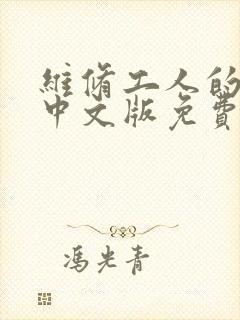 維脩工人的
中文版免費
馮光青